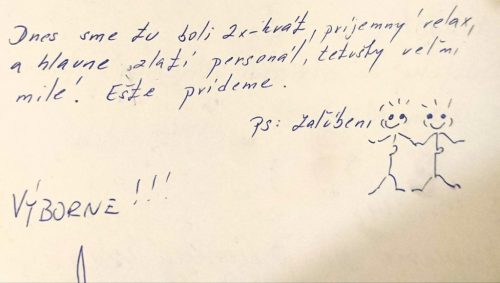 Dnes sme tu boli 2x-krát, príjemný relax,
a hlavne zlatí personál, tetušky veľmi
milé. Ešte prídeme.
Ps: zaľúbení
VÝBORNE!!!